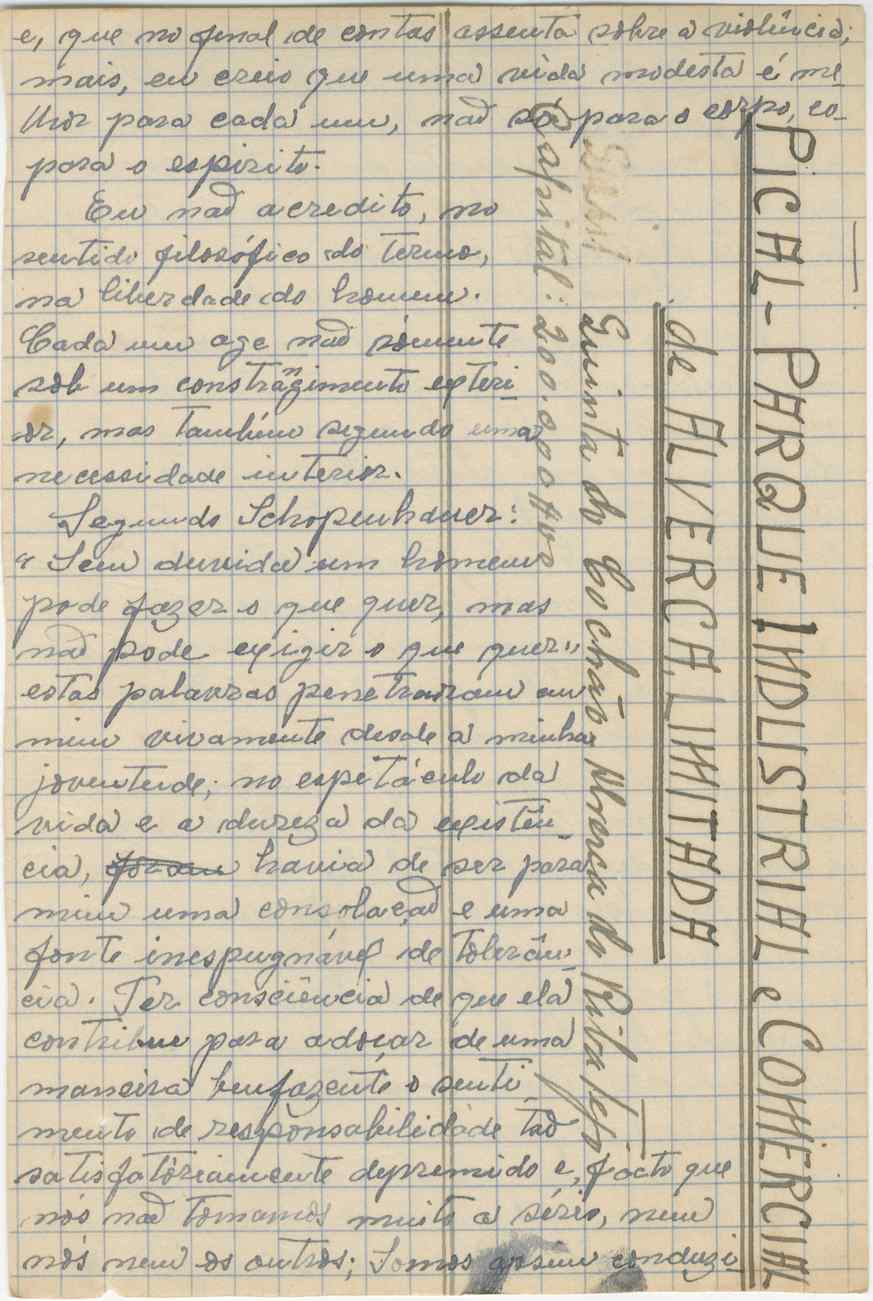 e, que no final de contas assenta sobre a violência;
mais, eu creio que uma vida modesta é me
lhor para cada um, não só para o corpo, co-
para o espirito.
Eu não acredito, no
sentido filosófico do termo,
na liberdade do homem.
Cada um age não sómente
sob um constrangimento exteri
or, mas também segundo uma
necessidade interior.
Segundo Schopenhauer:
"Sem duvida um homem
pode fazer o que quer, mas
não pode exigir o que quer"
estas palavras penetraram em
mim vivamente desde a minha
joventude; no espetáculo da
vida e a dureza da existên
cia, havia de ser para
mim uma consolação e uma
fonte inespugnável de tolerân
cia. Ter consciência de que ela
contribue para adoçar de uma
maneira benfazente o senti
mento de responsabilidade tão
satisfatòriamente deprimido e, facto que
nós não tomamos muito a sério, nem
nós nem os outros; Somos assim conduzi
PICAL - PARQUE INDUSTRIAL e COMERCIAL
de ALVERCA, LIMITADA
Quinta do Cochão Alverca do Ribatejo
Capital: 200.000$00